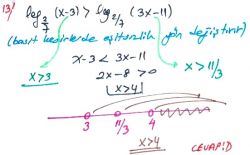 13/ log 3/7 (x-3) > log 2/7 (3x-11)
(basit kesirlerde eşitsizlik yön değiştirir)
x-3 < 3x-11
x>3 2x-8 >0 x>11/3
x>4
3 11/3 4
x>4 CEVAP:D